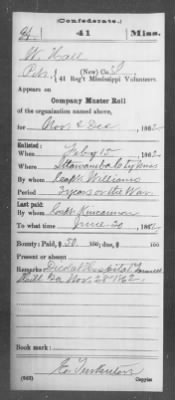 (Confederate.)
41 Miss.
W. Hall
Pvt., (New) Co.
41 Reg't Mississippi Volunteers.
Appears on
Company Muster Roll
of the organization named above,
for Nov & Dec, 1862
Enlisted:
When Feb'y 15, 1862
Where Itawamba City Miss
By whom Capt Williams
Period 3 years or the War
Last paid:
By whom Capt Kincannon
To what time June 30, 1862
Bounty: Paid $ 50. 100; due $ 100
Present or absent
Remarks: Died at Hospital
Ga. Nov. 28" 1862
Book mark:
(642) Copyist